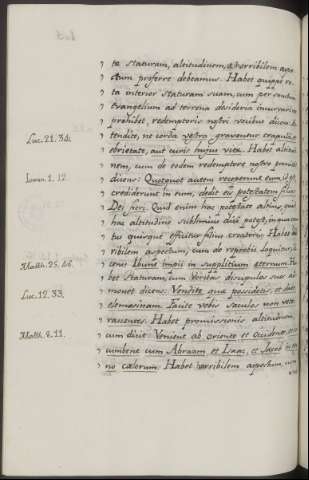 ta staturam, altitudinem, a horribilem aspe
ctum proferre debeamus. Habet quippe is
ta interior staturam suam, cum per sanctum
Evangelium ad terrena desideria incurvari
prohibet, redemptoris nostri vocibus dicens
Luc. 21. 34.
tendite, ne corda vestra graventur crapula, et
ebrietate, aut curis hujus vitæ. Habet altitudi
nem, cum de eodem redemptore nostro
Ioann. 1. 12.
dicens: Quotquot autem receperunt eum,
crediderunt in eum, dedit eis potestatem filios
Dei fieri. Quid enim hac potestate altius, quid
hac altitudine sublimius dici potest, in qua crea
tus quisque efficitur filius creatoris? Habet
ribilem aspectum, cum de reprobis loquitur,
Matth. 25. 46.
Ibunt impii in supplitium æternum. Ha
bet Staturam, cum Veritas discipulos suos ad
Luc. 12. 33.
monet dicens: Vendite quæ possidetis, et date
eleemosinam. Facite vobis sacculos non vete
rascentes. Habet promissionis altitudinem,
Matth. 8. 11.
cum dicit: Venient ab oriente, et occidente, et
cumbent cum Abraam et Isaac, et Jacob in reg
no cælorum. Habet horribilem aspectum, cum